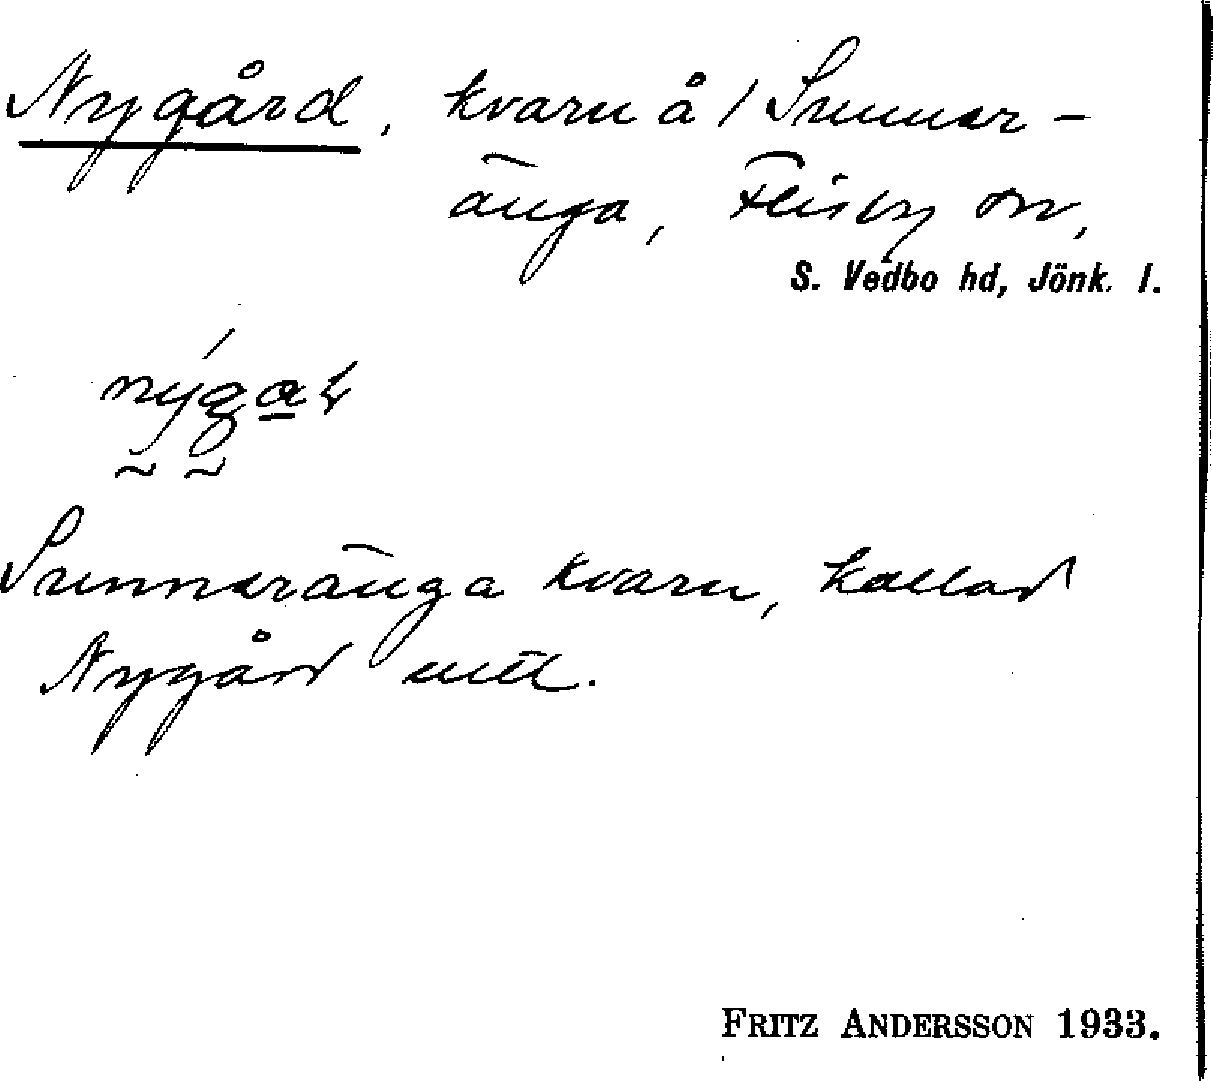 Nygård, kvarn å / Sunner-
änga, Flisby sn,
S. Vedbo hd, Jönk. l.
Sunneränga kvarn, kallad
Nygård
FRITZ ANDERSSON 1933.